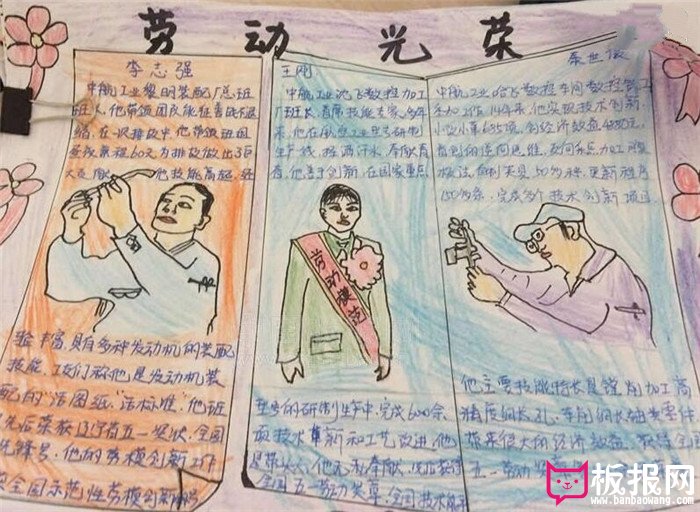 劳动光荣
李志强
中航工业黎明装配厂总班
班长,他带领团队能征善战不退
缩,在一次排故中,他带领班组
连续累短60天为排故做出了巨
大贡献 他技能高超,经
验丰富,具有多种发动机的装配
技能,工友们称他是发动机装
配的"活图纸""活标准",他班
先后荣获辽宁省五一奖状,全国
先锋号,他的劳模创新工作
全国示范性劳模创新
王刚
中航工业沈飞数控加工
厂班长,首席技能专家,多年
来,他在航空工业型号研制
生产一线,挥洒汗水,奉献青
春,他善于创新,在国家重点
劳动模范
型号的研制生产中,完成600余
项技术革新和工艺改进,他
是带头人,他无私奉献,先后获得
全国五一劳动奖章,全国技术能手
秦世俊
中航工业哈飞数控车间数控铣工
参加工作14年来,他实现技术创新,
小改小革635项,创经济效益
首创的逆向思维,
完成多个技术创新项目
他主要技能特长是镗削加工高
精度
带来很大的经济效益,获得全国
五一劳动奖章
板报网
www.banbaowang.com